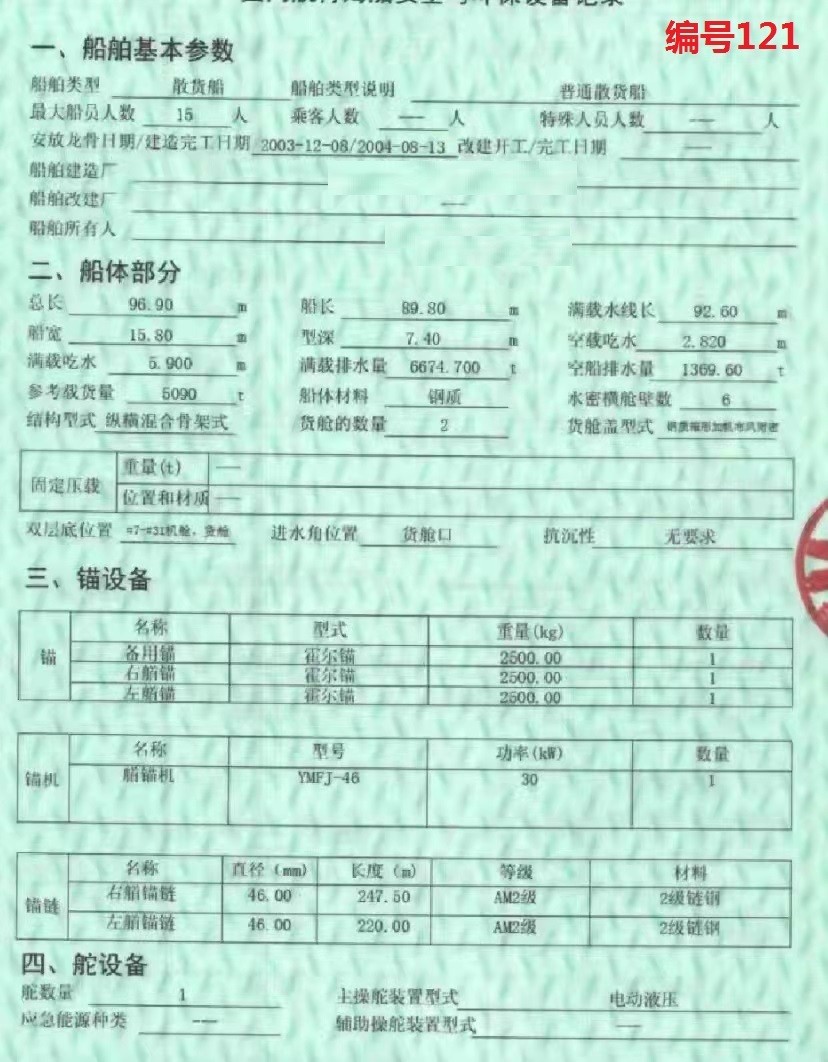 编号121
一、船舶基本参数
船舶类型 散货船 船舶类型说明 普通散货船
最大船员人数 15 人 乘客人数 --- 人 特殊人员人数 --- 人
安放龙骨日期/建造完工日期 2003-12-08/2004-08-13 改建开工/完工日期 ---
船舶建造厂
船舶改建厂 ---
船舶所有人
二、船体部分
总长 96.90 m 船长 89.80 m 满载水线长 92.60 m
船宽 15.80 m 型深 7.40 m 空载吃水 2.820 m
满载吃水 5.900 m 满载排水量 6674.700 t 空船排水量 1369.60 t
参考载货量 5090 t 船体材料 钢质 水密横舱壁数 6
结构型式 纵横混合骨架式 货舱的数量 2 货舱盖型式
固定压载 重量(t) ---
位置和材质 ---
双层底位置 #7-#31机舱，货舱 进水角位置 货舱口 抗沉性 无要求
三、锚设备
锚 名称 型式 重量(kg) 数量
备用锚 霍尔锚 2500.00 1
右艏锚 霍尔锚 2500.00 1
左艏锚 霍尔锚 2500.00 1
锚机 名称 型号 功率(kW) 数量
艏锚机 YMFJ-46 30 1
锚链 名称 直径 (mm) 长度 (m) 等级 材料
右艏锚链 46.00 247.50 AM2级 2级链钢
左艏锚链 46.00 220.00 AM2级 2级链钢
四、舵设备
舵数量 1 主操舵装置型式 电动液压
应急能源种类 --- 辅助操舵装置型式 ---